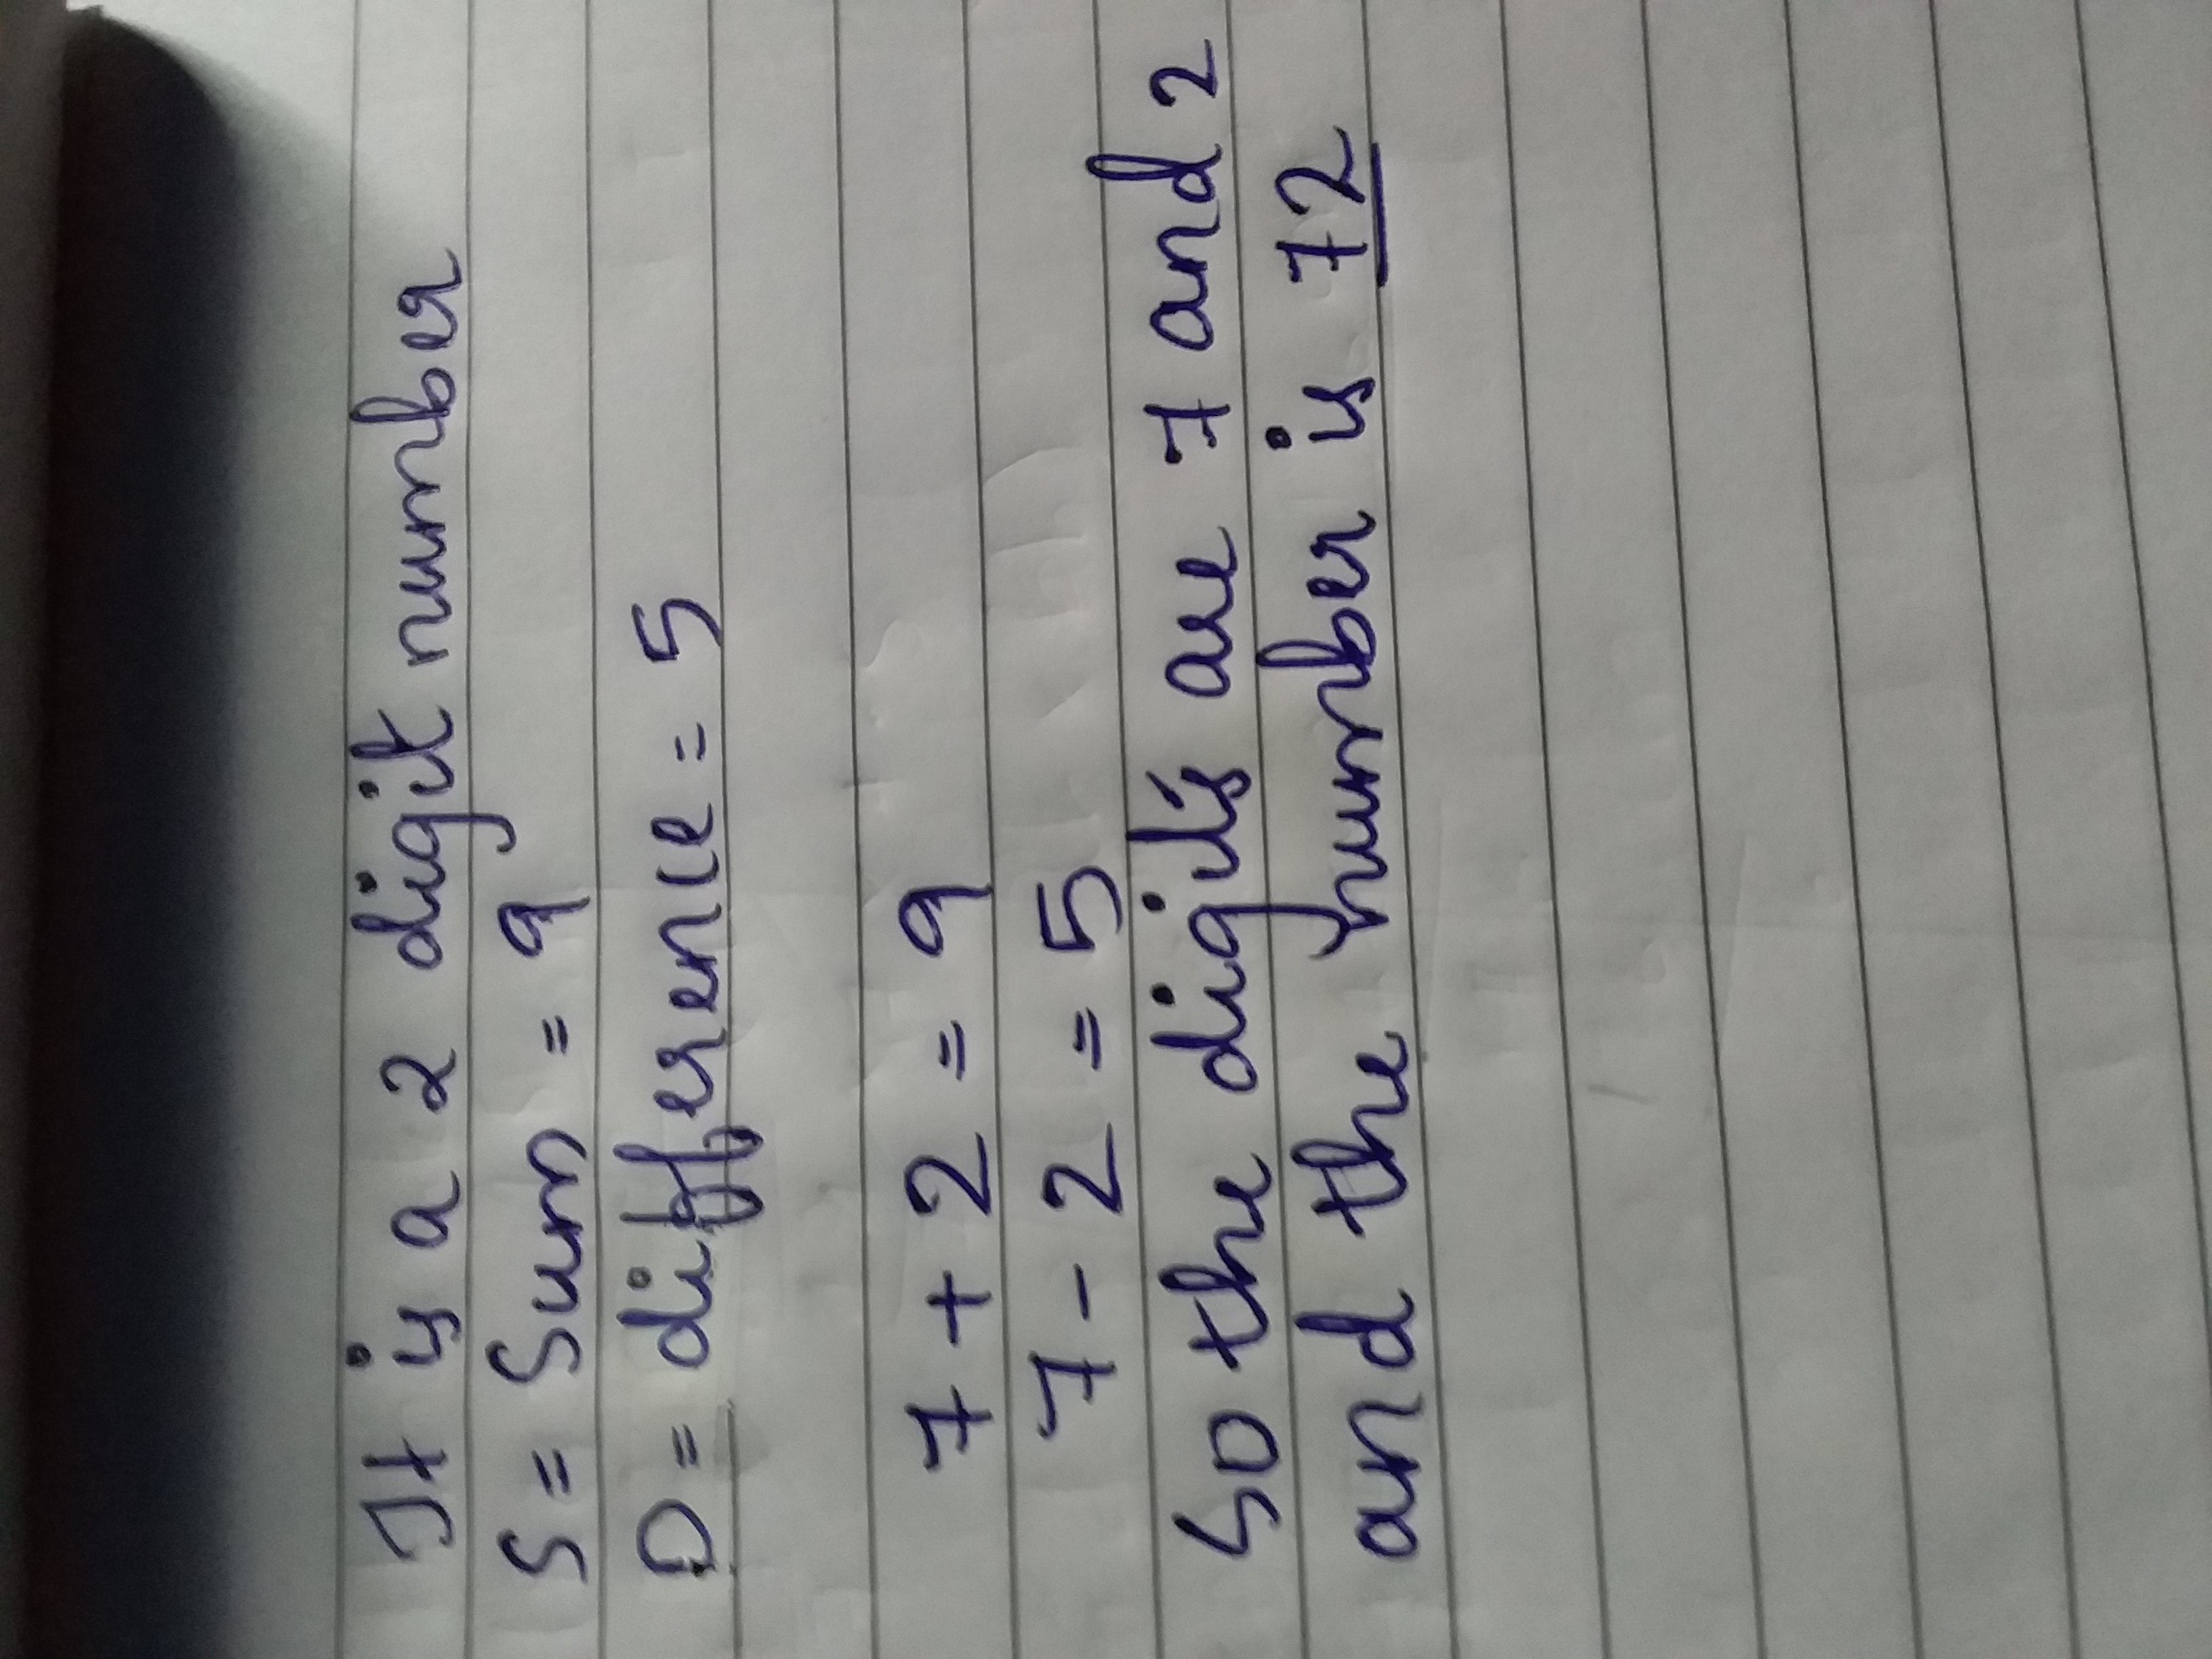 It is a 2 digit number
S = Sum = 9
D = difference = 5
7 + 2 = 9
7 - 2 = 5
So the digits are 7 and 2
and the number is 72